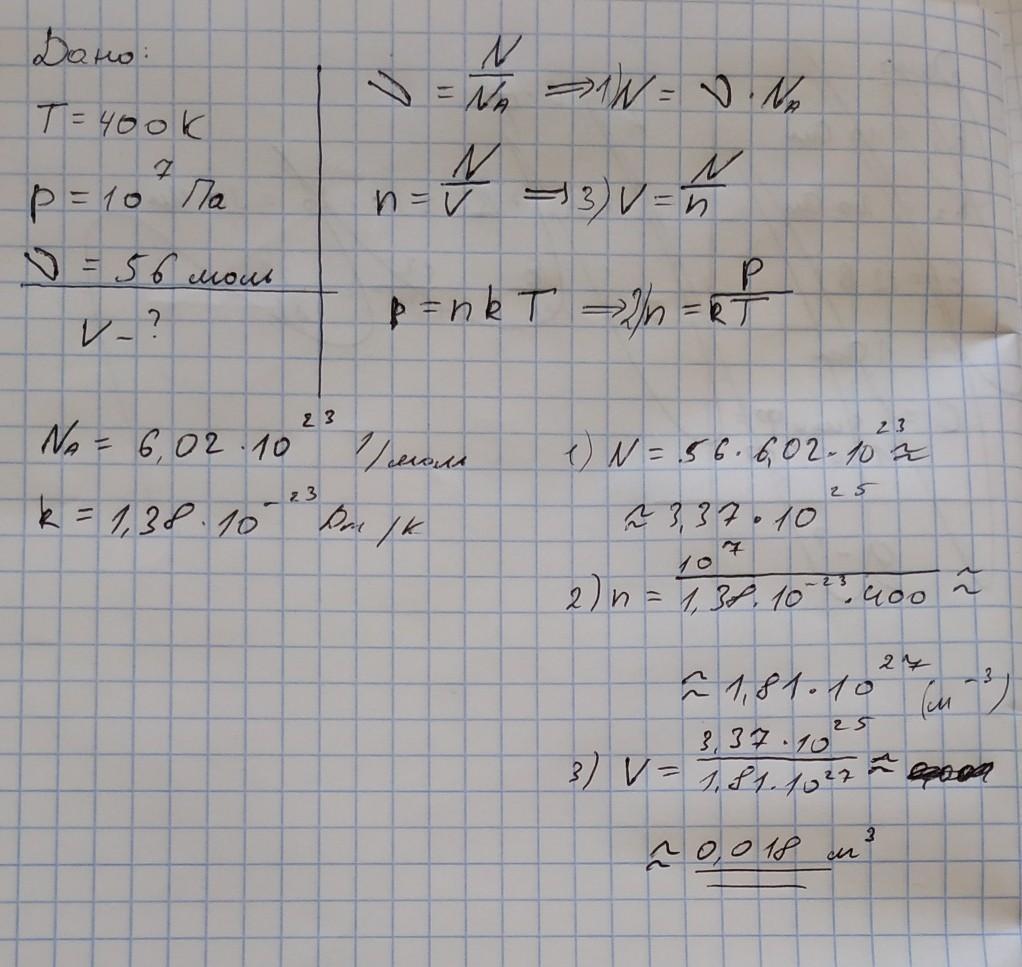 Дано:
T = 400 К
p = 10⁷ Па
ν = 56 моль
V – ?
ν = N/Nₐ ⟹ 1) N = ν · Nₐ
n = N/V ⟹ 3) V = N/n
p = n k T ⟹ 2) n = p/kT
Nₐ = 6,02 · 10²³ 1/моль
k = 1,38 · 10⁻²³ Дж/К
1) N = 56 · 6,02 · 10²³ ≈
≈ 3,37 · 10²⁵
2) n = 10⁷/1,38 · 10⁻²³ · 400 ≈
≈ 1,81 · 10²⁷ (м⁻³)
3) V = 3,37 · 10²⁵/1,81 · 10²⁷ ≈
≈ 0,018 м³